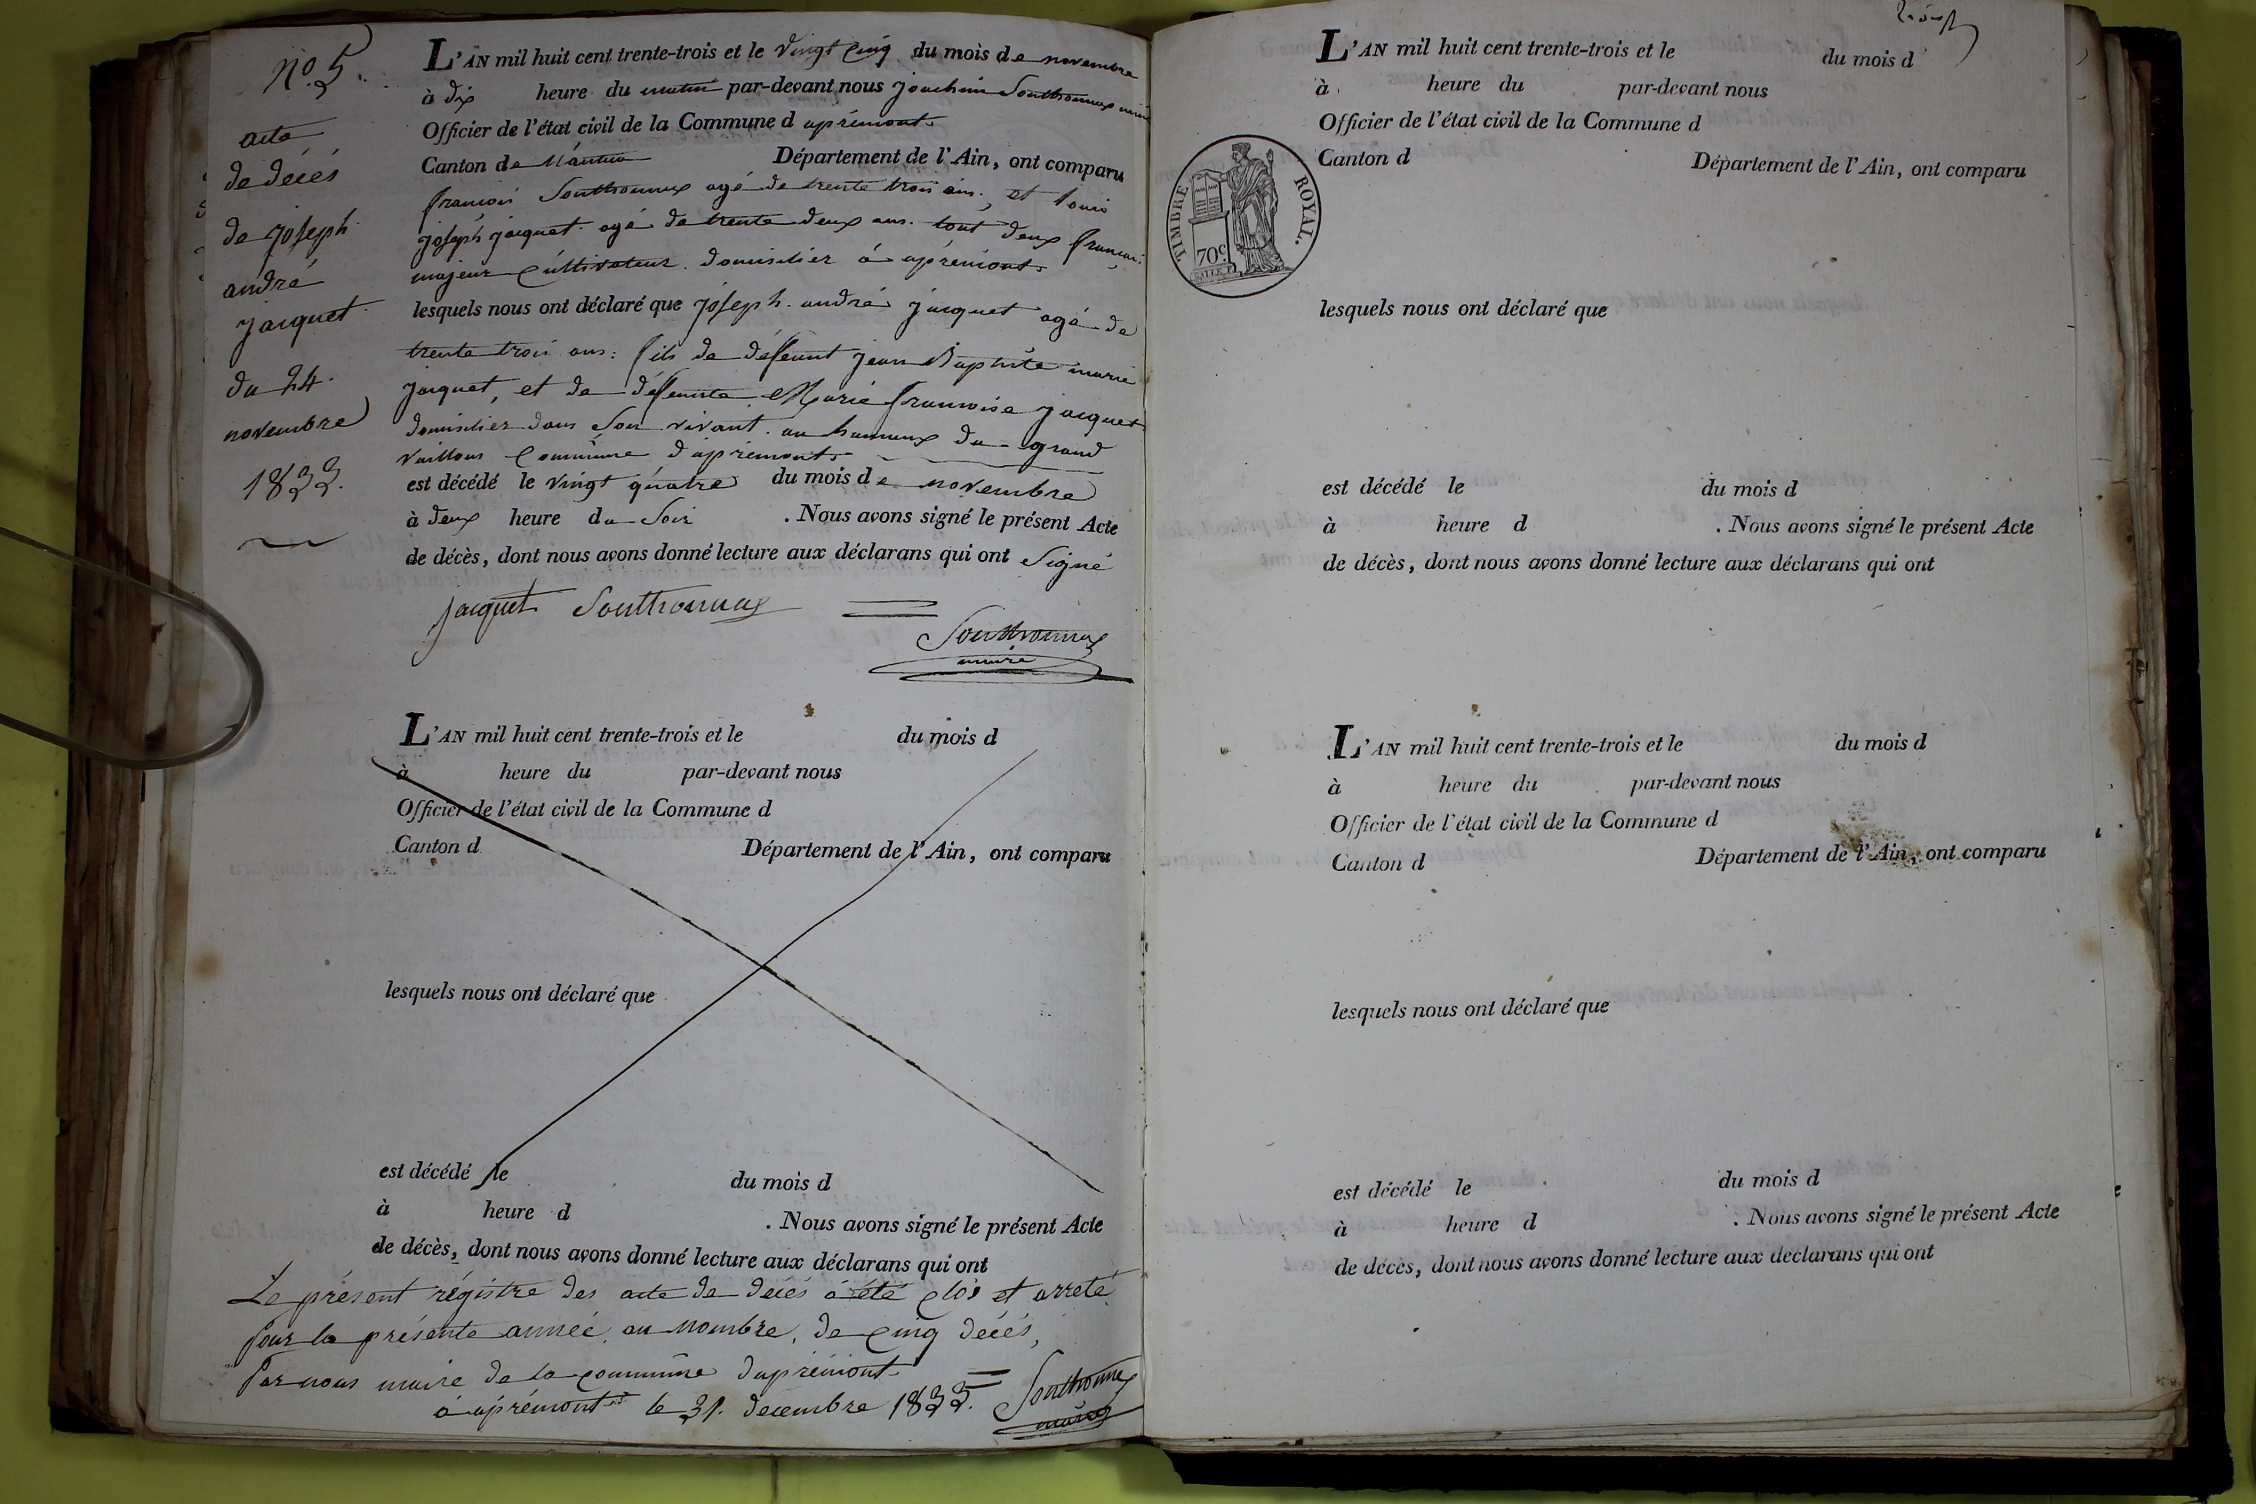 N.o 5.
acte
de décés
de joseph
andré
jacquet
du 24
novembre
1833.
L'AN mil huit cent trente-trois et le vingt cinq du mois de novembre
à dix heure du matin par-devant nous joachim Sonthonnax maire
Officier de l'état civil de la Commune d aprémont
Canton de Nantua Département de l'Ain, ont comparu
francois Sonthonnax agé de trente trois ans, et louis
joséph jacquet agé de trente deux ans. tout deux francais
majeur cultivateur domicilier à aprémont
lesquels nous ont déclaré que joseph andré jacquet agé de
trente trois ans: fils de deffunt jean Baptiste marie
jacquet, et de deffunte Marie francoise jacquet
domicilier dans Son vivant au hamaux du grand
vaillous Commune d'aprémont
est décédé le vingt quatre du mois de novembre
à deux heure du Soir . Nous avons signé le présent Acte
de décès, dont nous avons donné lecture aux déclarans qui ont Signé
jacquet Sonthonnax
Sonthonnax
maire
L'AN mil huit cent trente-trois et le du mois d
à heure du par-devant nous
Officier de l'état civil de la Commune d
Canton d Département de l'Ain, ont comparu
lesquels nous ont déclaré que
est décédé le du mois d
à heure d . Nous avons signé le présent Acte
de décès, dont nous avons donné lecture aux déclarans qui ont
Le présent régistre des acte de décés à été clos et arreté
Pour la présente année, au nombre, de Cinq décés,
Par nous maire de la commune d'aprémont
à aprémont le 31. décembre 1833. Sonthonnax
maire
L'AN mil huit cent trente-trois et le du mois d
à heure du par-devant nous
Officier de l'état civil de la Commune d
Canton d Département de l'Ain, ont comparu
TIMBRE ROYAL.
70c
lesquels nous ont déclaré que
est décédé le du mois d
à heure d . Nous avons signé le présent Acte
de décès, dont nous avons donné lecture aux déclarans qui ont
L'AN mil huit cent trente-trois et le du mois d
à heure du par-devant nous
Officier de l'état civil de la Commune d
Canton d Département de l'Ain, ont comparu
lesquels nous ont déclaré que
est décédé le du mois d
à heure d . Nous avons signé le présent Acte
de décès, dont nous avons donné lecture aux déclarans qui ont